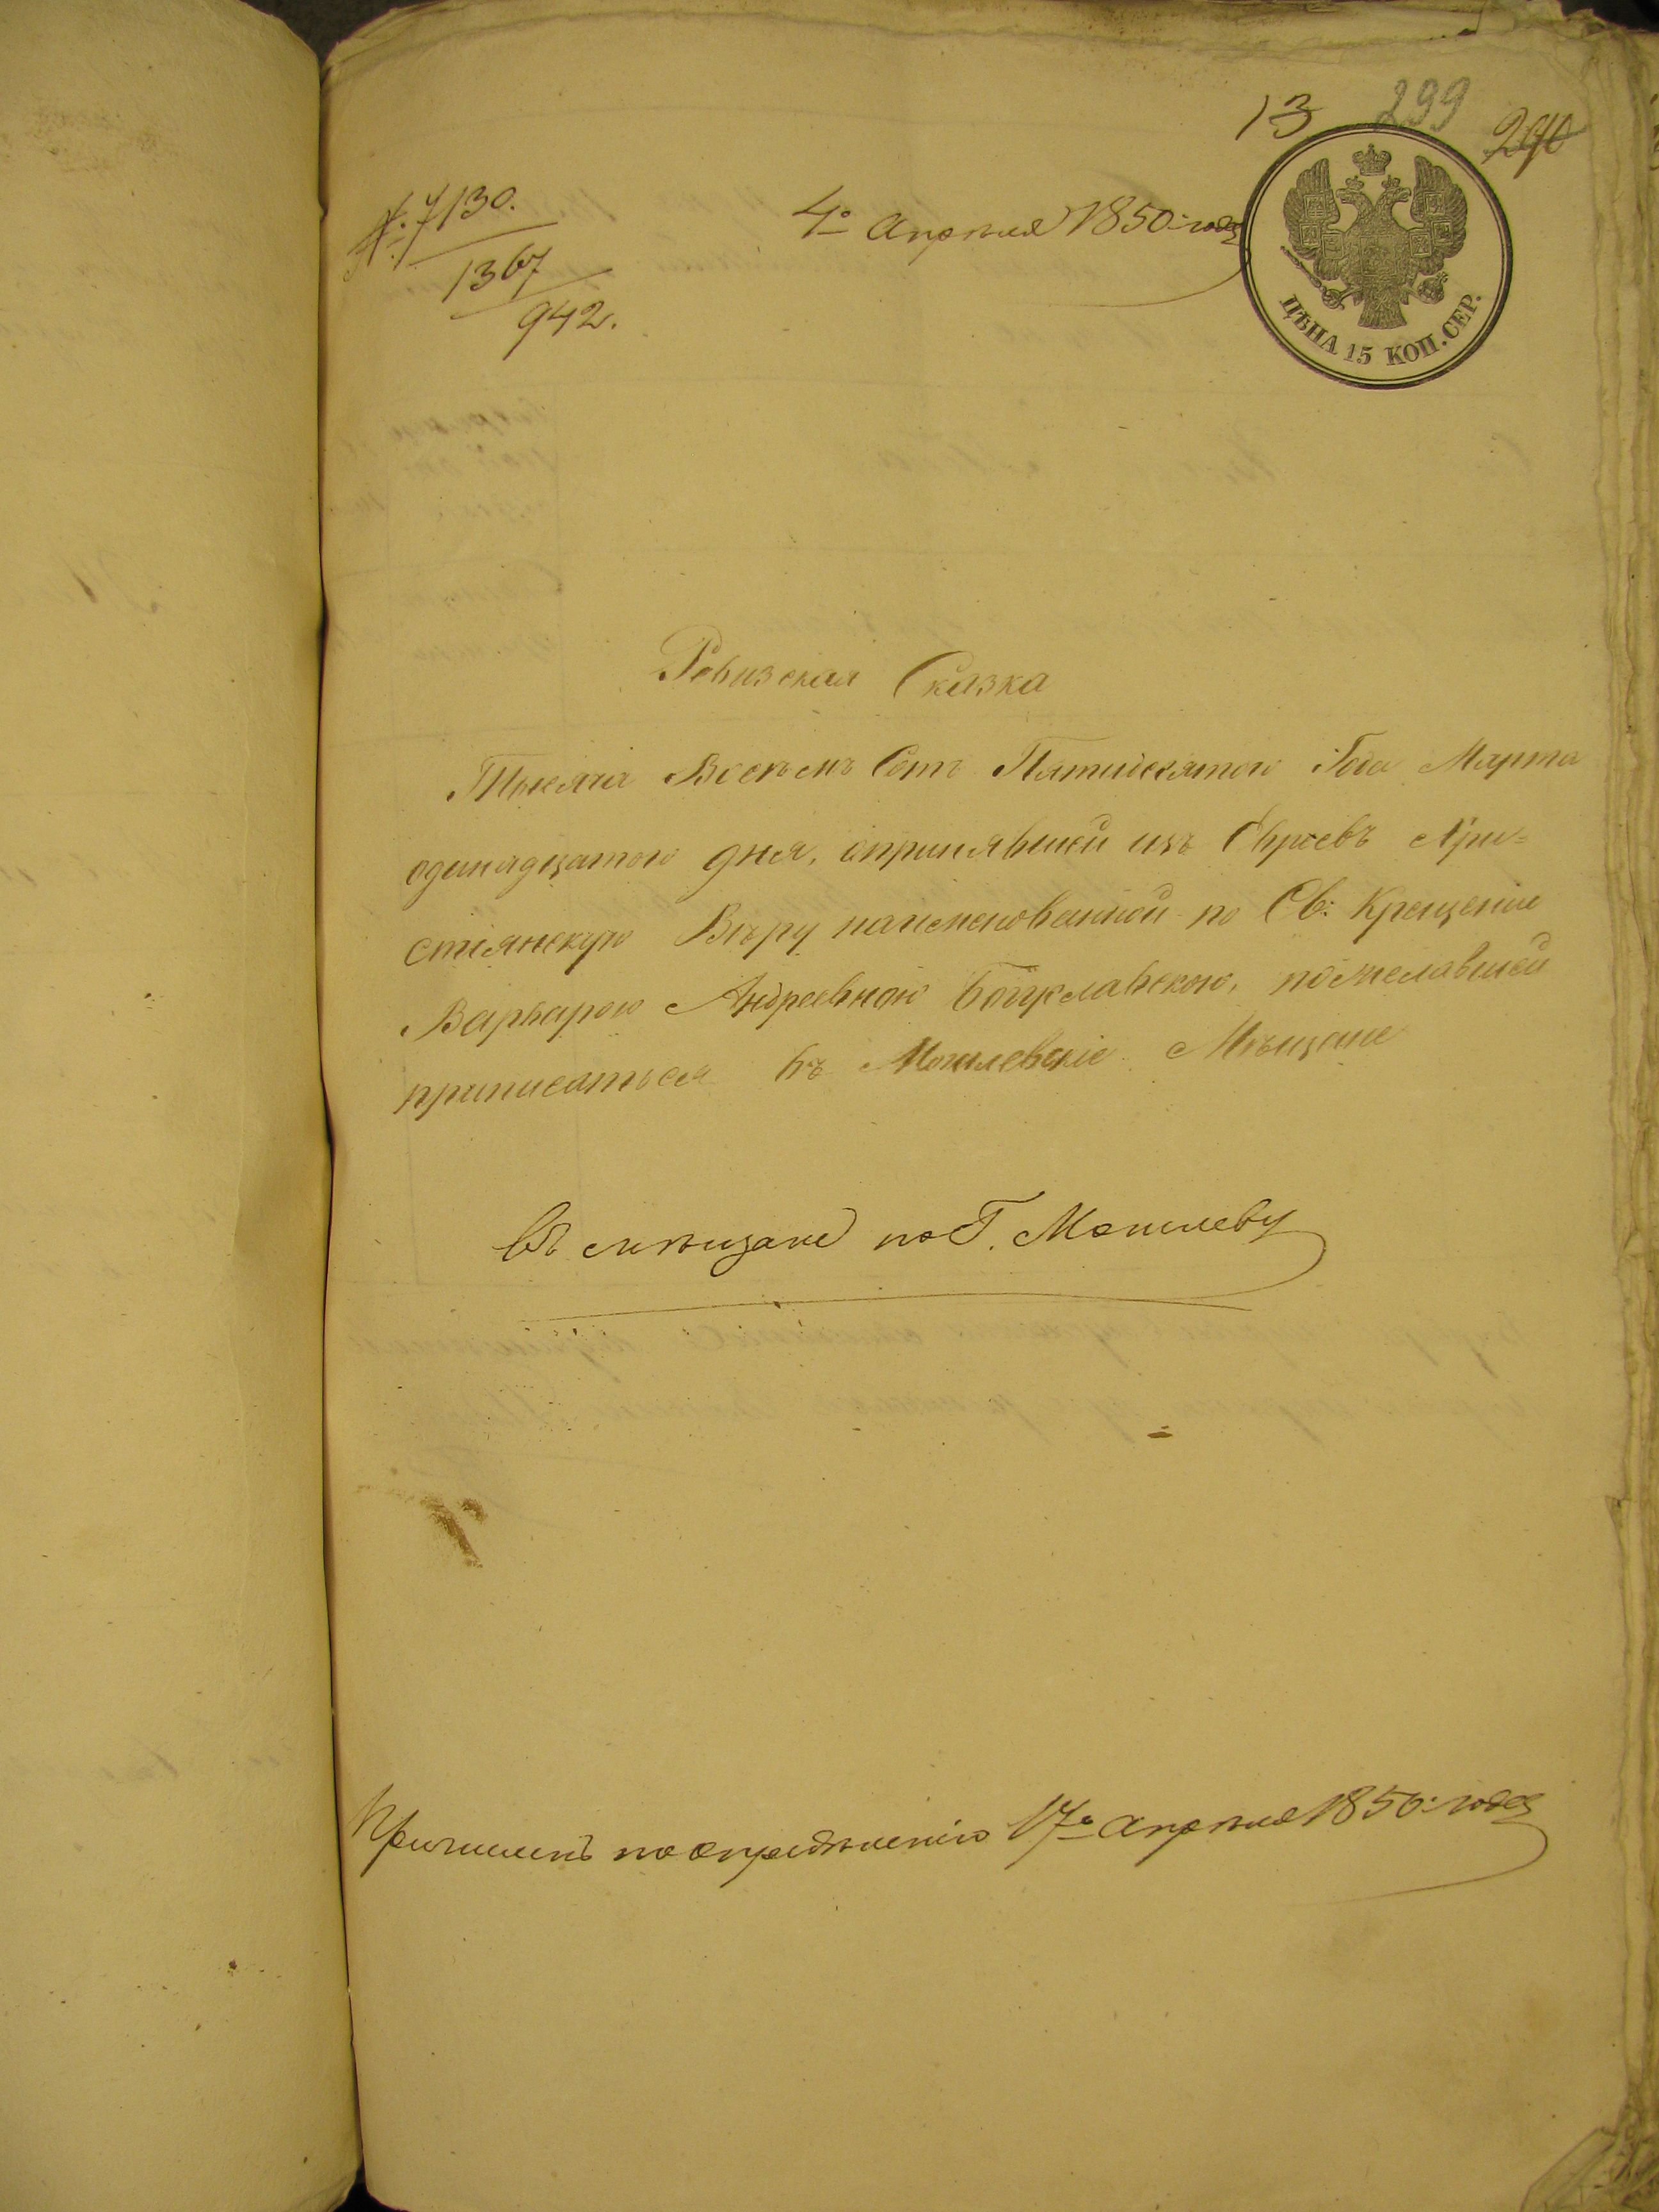 13 299 290
№ 7130.
1367
942.
4º апрѣля 1850: года
ЦѢНА 15 КОП. СЕР.
Ревизская Сказка
Тысяча Восемъ Сотъ Пятидесятого Года Марта
одинадцатого дня, о принявшей изъ Евреевъ Хри=
стіянскую Вѣру наименованной по Св: Крещеніе
Варварою Андреевною Богуславскою, пожелавшей
приписаться въ Могилевскіе Мѣщане
въ мѣщане по Г. Могилеву
Причисленъ по опредѣленію 17º апрѣля 1850: года